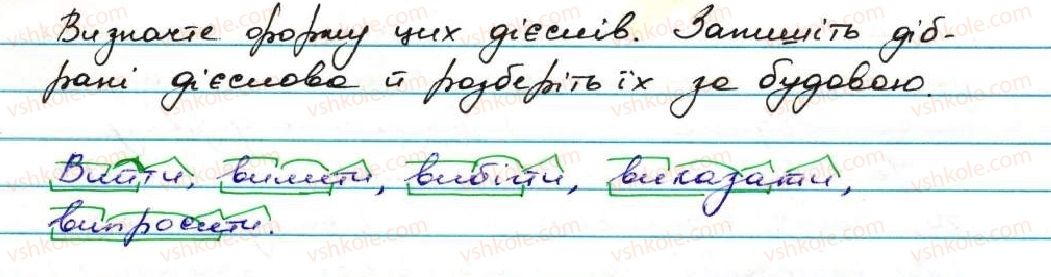 Визначте форму цих дієслів. Запишіть діб-
рані дієслова й розберіть їх за будовою.
Вийти, вилити, вибіти, виказати,
випросити.